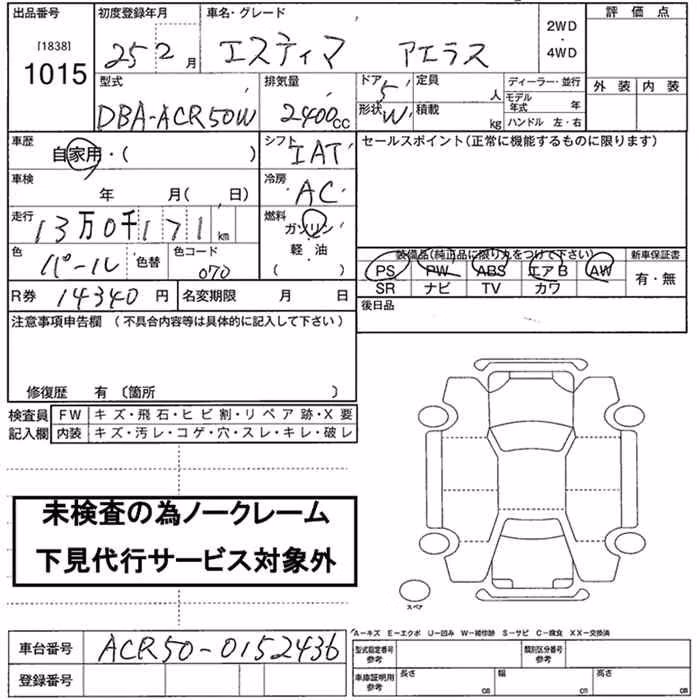 出品番号
[1838]
1015
初度登録年月
25 2 月
車名・グレード
エスティマ アエラス
2WD
・
4WD
評価点
外装 内装
型式
DBA-ACR50W
排気量
2400cc
ドア 5
形状 W
定員 人
積載 kg
ディーラー・並行
モデル年式 年
ハンドル 左・右
車歴
自家用・( )
シフト
IAT
セールスポイント(正常に機能するものに限ります)
車検
年 月( 日)
冷房
AC
走行
13万0千171km
燃料
ガソリン
軽・油
( ・ )
色
パール 色替
色コード
070
装備品(純正品に限り丸をつけて下さい)
PS PW ABS エアB AW
SR ナビ TV カワ
新車保証書
有・無
R券 14340円
名変期限 月 日
後日品
注意事項申告欄 (不具合内容等は具体的に記入して下さい)
修復歴 有 〔箇所 〕
検査員記入欄
FW キズ・飛石・ヒビ割・リペア跡・X要
内装 キズ・汚レ・コゲ・穴・スレ・キレ・破レ
未検査の為ノークレーム
下見代行サービス対象外
スペア
A−キズ E−エクボ U−凹み W−補修跡 S−サビ C−腐食 XX−交換済
車台番号 ACR50-0152436
登録番号
型式指定番号
参考
類別区分番号
参考
車庫証明用
参考
長さ cm
幅 cm
高さ cm